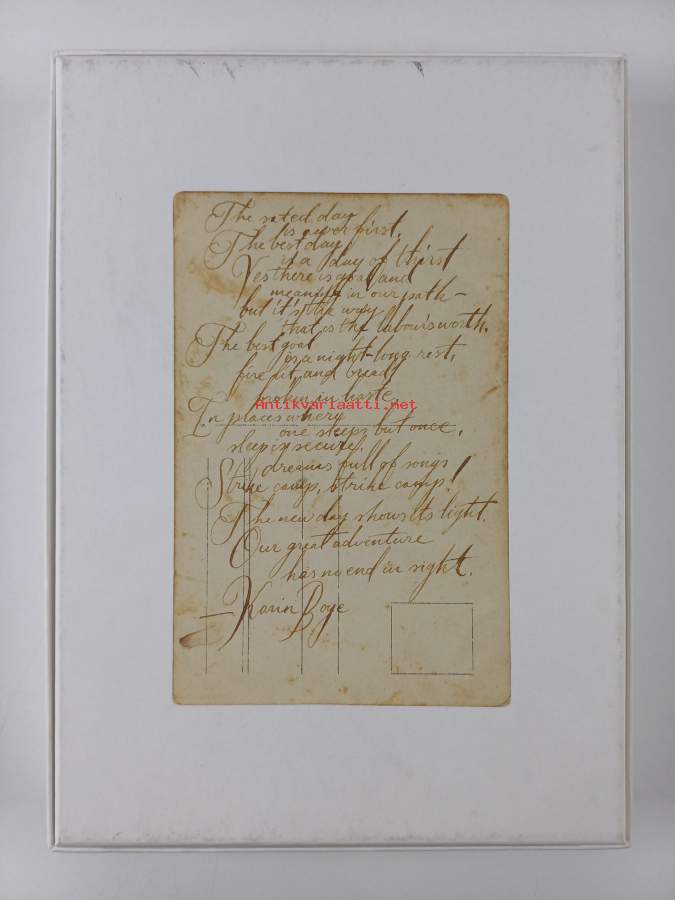 The sated day
is never first.
The best day
is a day of thirst
Yes there is goal and
meaning in our path –
but it's the way
that is the labour's worth.
The best goal
is a night-long rest,
fire lit, and bread
broken in haste.
Antikvariaatti.net
In places where
one sleeps but once,
sleep is secure,
dreams full of songs
Strike camp, strike camp!
The new day shows its light.
Our great adventure
has no end in sight.
– Karin Boye